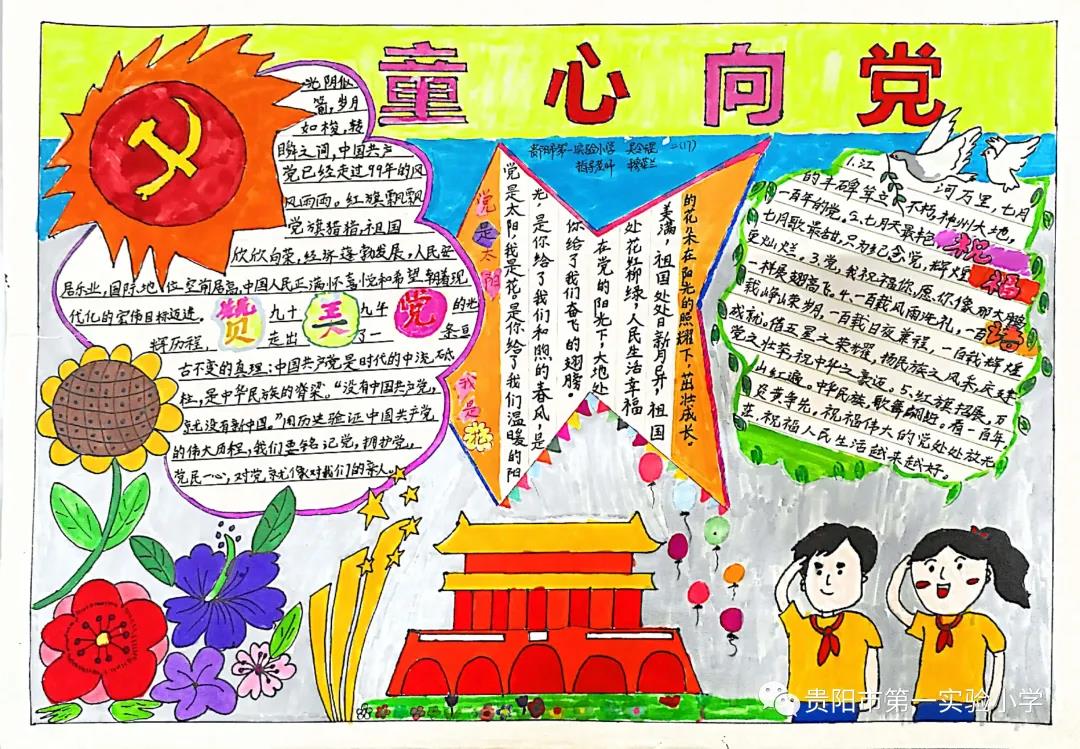 童心向党
贵阳市第一实验小学 二(17)
指导老师
光阴似
箭,岁月
如梭,转
瞬之间,中国共产
党已经走过99年的风
风雨雨。红旗飘飘
党旗猎猎,祖国
欣欣向荣,经济蓬勃发展,人民安
居乐业,国际地位空前居高,中国人民正满怀喜悦和希望朝着现
优化的宏伟目标迈进。赞九十美九年党的光
辉历程,走出了一条亘
古不变的真理:中国共产党是时代的中流砥
柱,是中华民族的脊梁。“没有中国共产党,
就没有新中国。”用历史验证中国共产党
的伟大历程,我们要铭记党,拥护党,
党民一心,对党就像对我们的亲人。
党是太阳
我是花
党是太阳,我是花。是你给了我们温暖的阳
光,是你给了我们和煦的春风,是
你给了我们奋飞的翅膀。
在党的阳光下,大地处
处花红柳绿,人民生活幸福
美满,祖国处处日新月异,祖国
的花朵在阳光的照耀下,茁壮成长。
1.江
河万里,七月
的丰碑耸立不朽。神州大地,
一百年的党。2.七月天最艳,
七月歌最甜,只为纪念党,辉煌
更灿烂。3.党,我祝福你,愿你像那大鹏
一样展翅高飞。4.一百载风雨洗礼,一百
载峥嵘岁月,一百载日夜兼程,一百载辉煌
成就。借五星之荣耀,杨民族之风采,庆建
党之壮荣,祝中华之豪迈。5.红旗招展,万
山红遍。中华民族,歌舞翩跹。看一百年
负黄争先,祝福伟大的党处处放光
彩,祝福人民生活越来越好。
祝
福
语
贵阳市第一实验小学